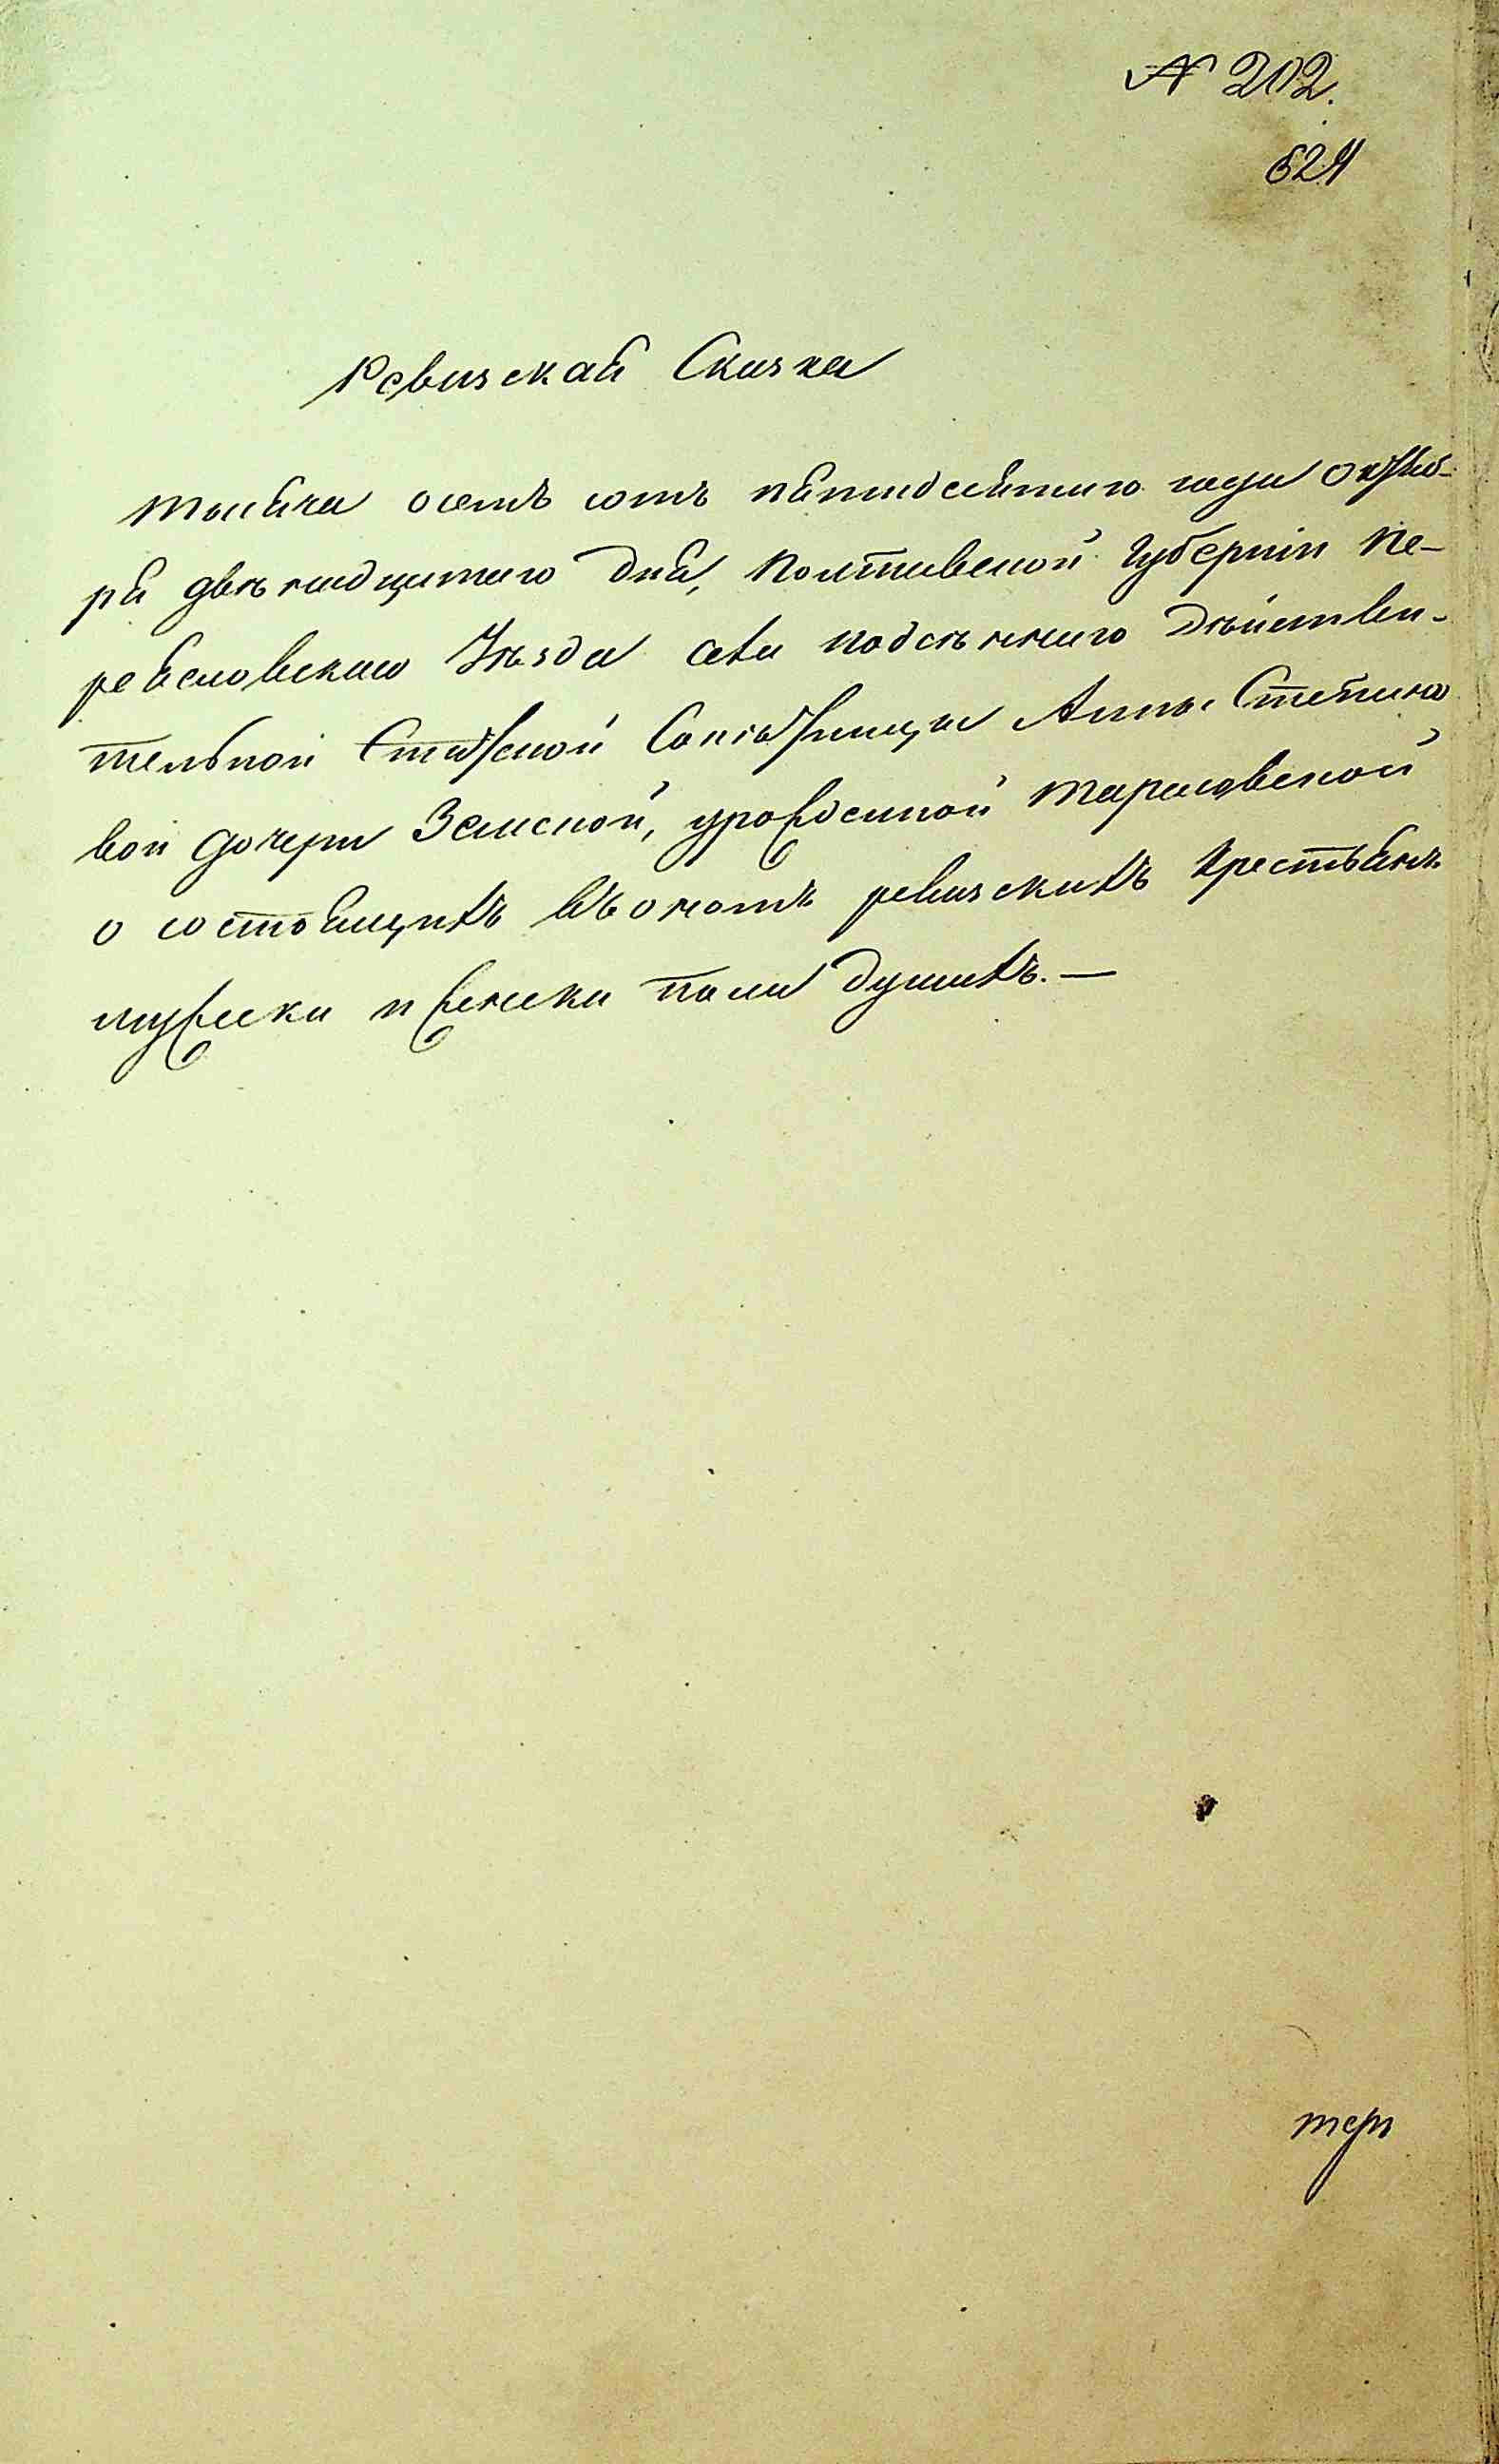 № 202.
624
Ревизская Сказка
Тысяча осемъ сотъ пятидесятаго года Октяб-
ря двѣнадцатаго дня, Полтавской Губерніи Пе-
реясловскаго Уѣзда села Подсѣннаго Дѣйстви-
тельной Статской Совѣтницы Анны Степано
вой дочери Земской, урожденной
о состоящихъ въ ономъ ревизскихъ крестьянъ
мужеска и женска пола душахъ. —